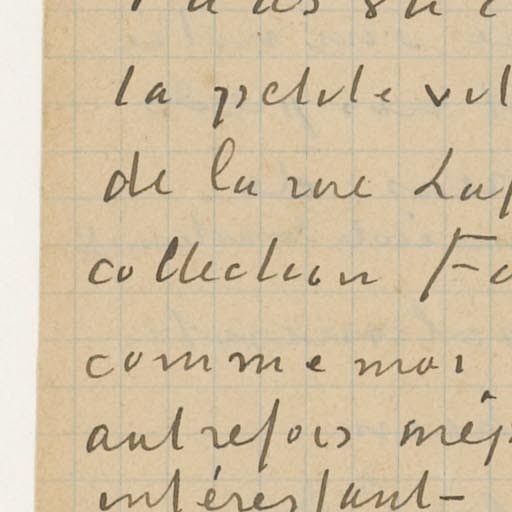 la petite vil
de la rue Laf
collection Fa
comme moi
autrefois mép
intéressant-